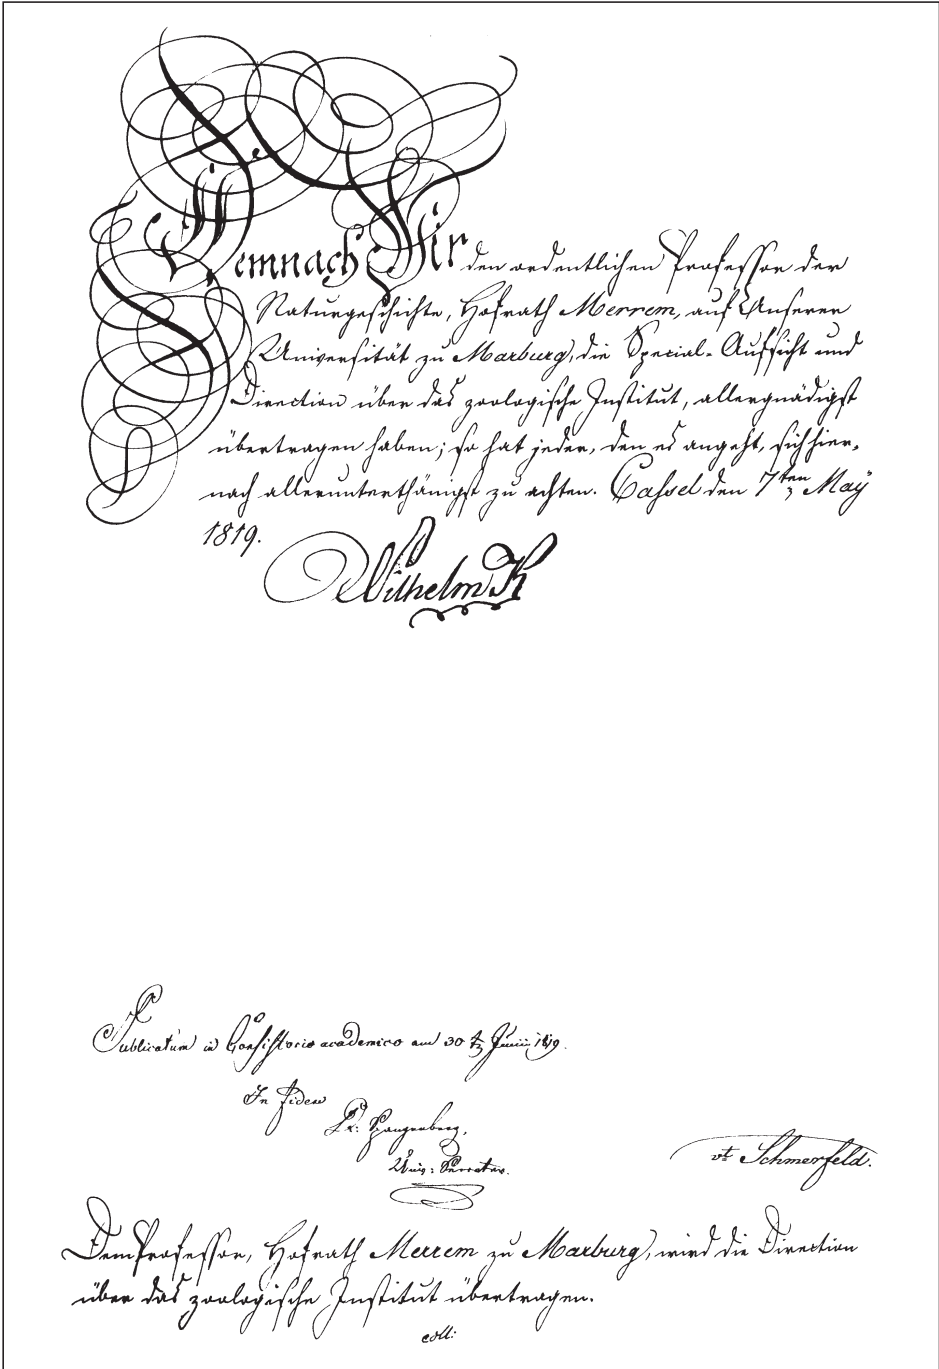 Demnach Wir den ordentlichen Professor der
Naturgeschichte, Hofrath Merrem, auf Unserer
Universität zu Marburg, die Special-Aufsicht und
Direction über das zoologische Institut, allergnädigst
übertragen haben; so hat jeder, den es angeht, sich hier-
nach allerunterthänigst zu achten. Cassel den 7ten May
1819.
Wilhelm K
Publicatum in Consistorio academico am 30 Junii 1819.
In fidem
Dr: Spangenberg,
Univ: Secretar.
vt Schmerfeld.
Dem Professor, Hofrath Merrem zu Marburg, wird die Direction
über das zoologische Institut übertragen.
coll: